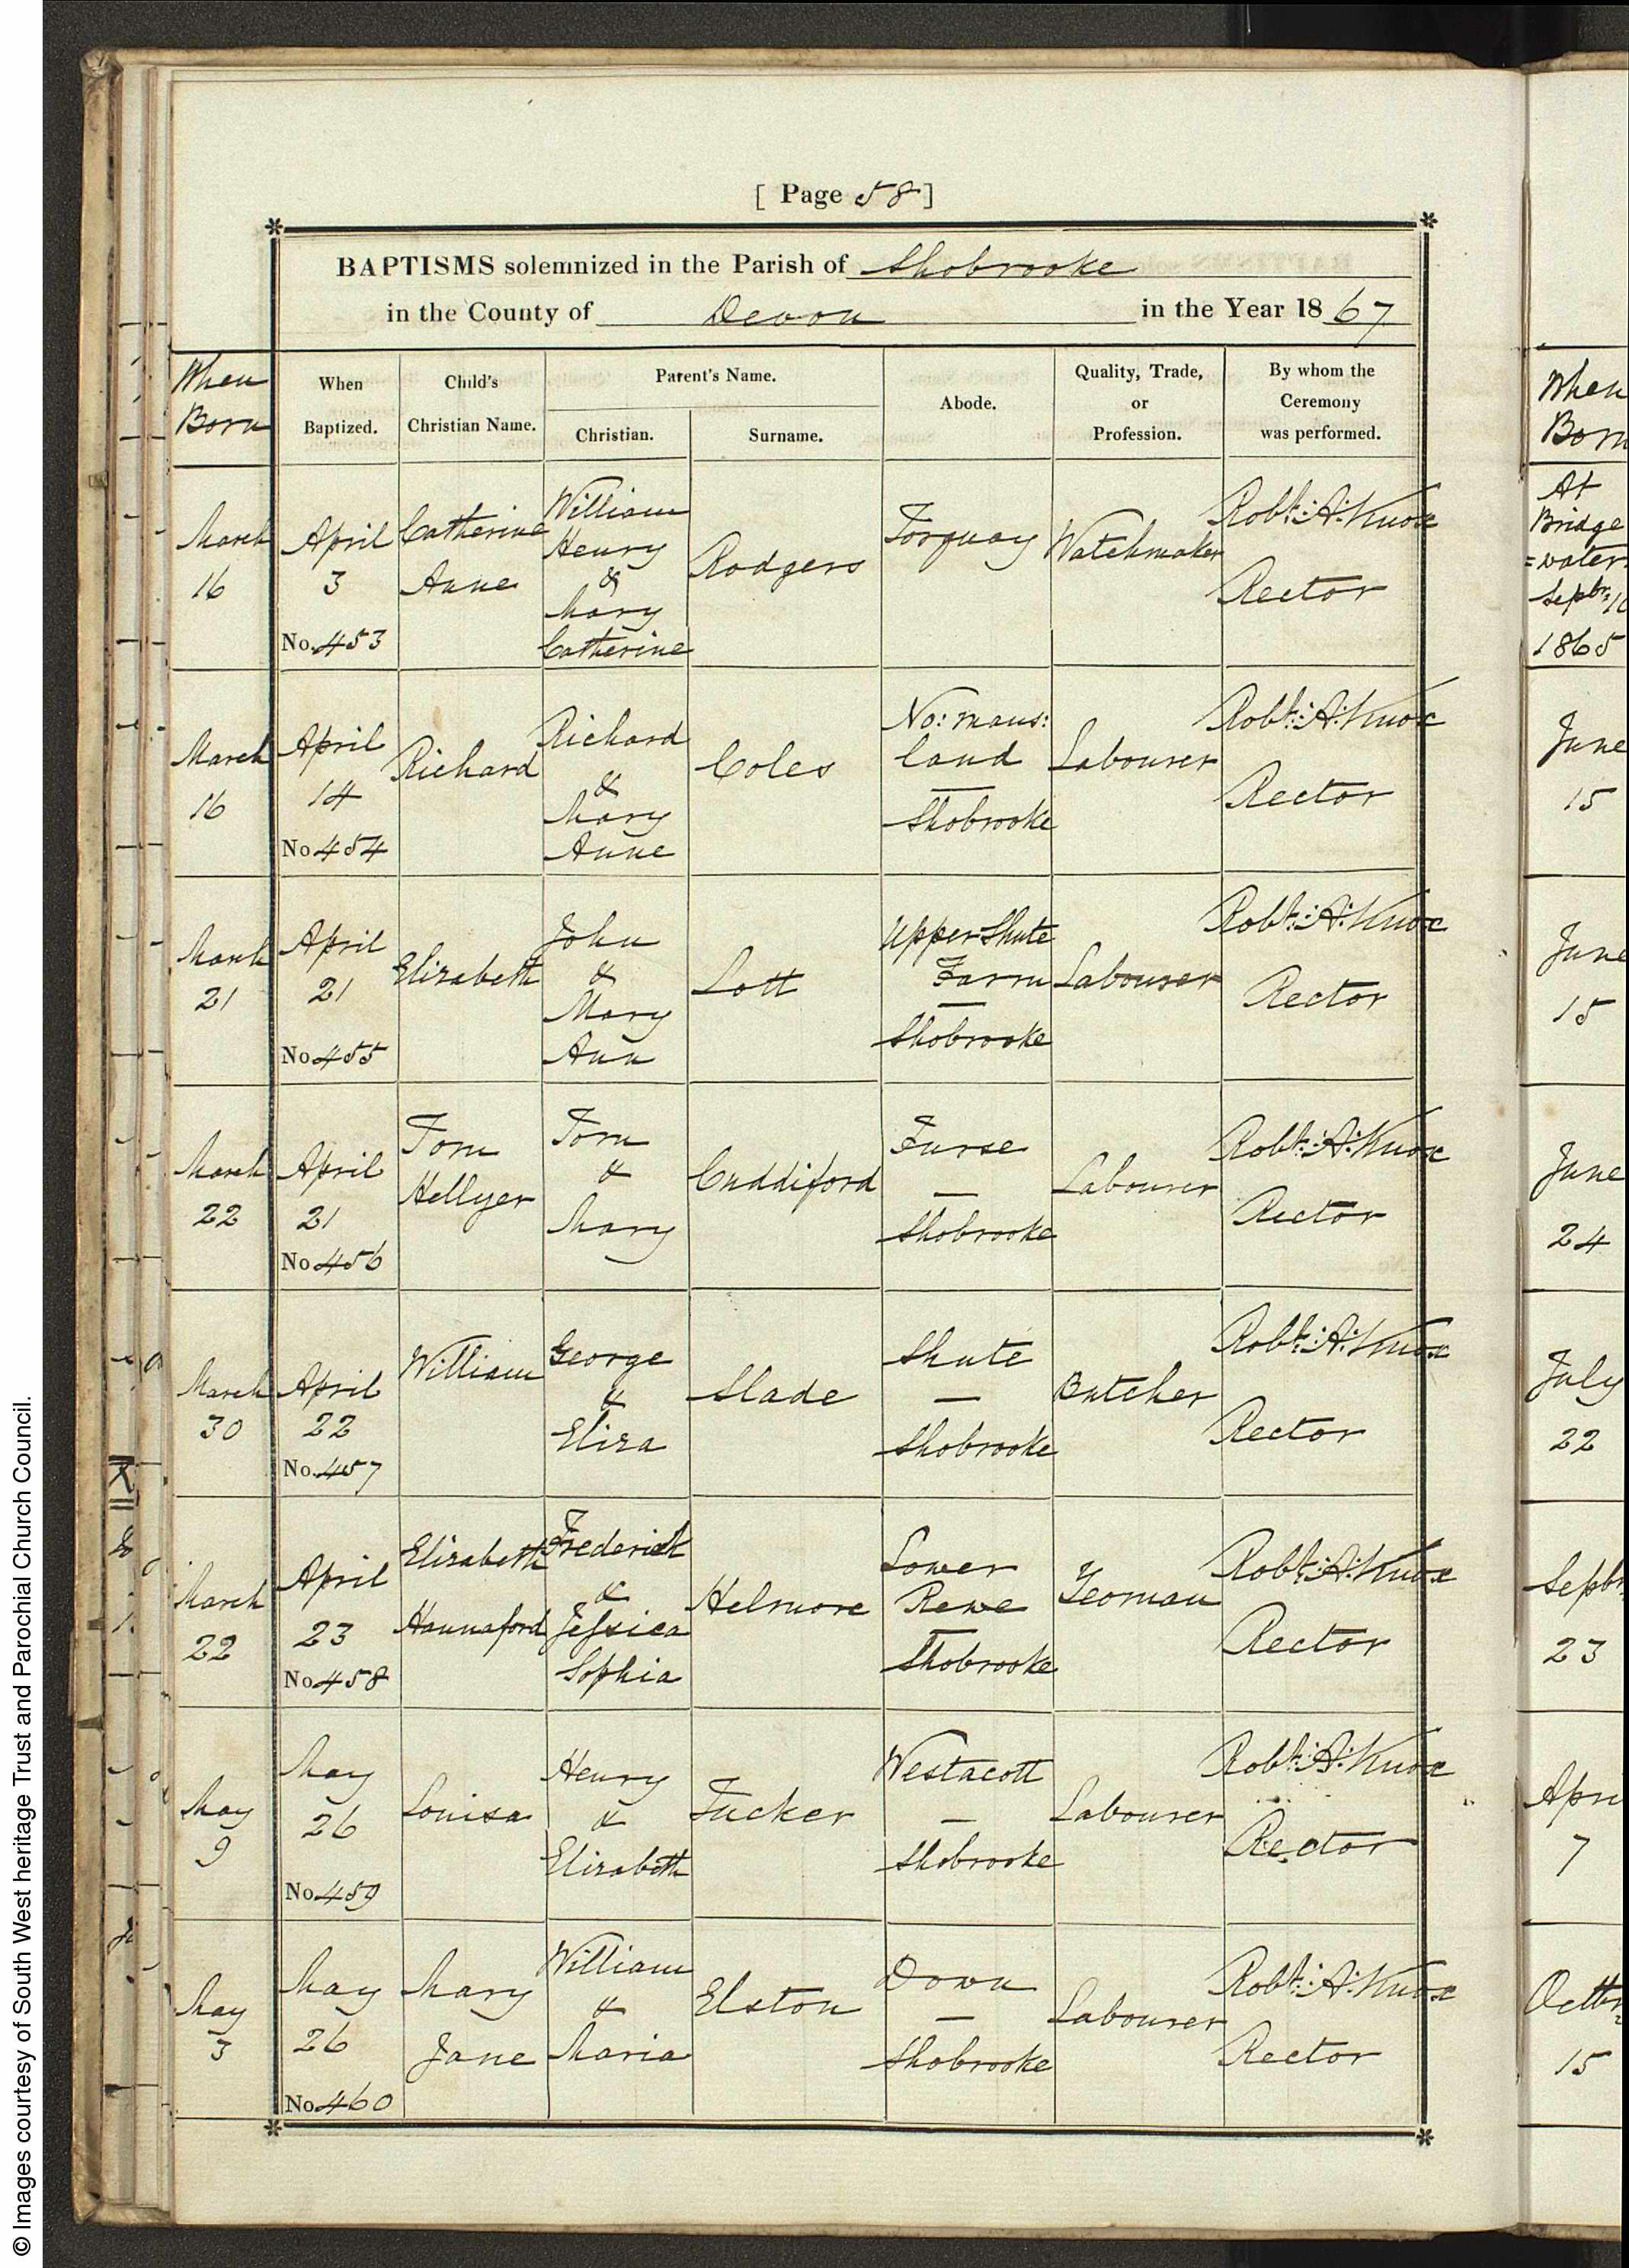 [ Page 58 ]
BAPTISMS solemnized in the Parish of Shobrooke
in the County of Devon in the Year 1867
When Born
When Baptized.
Child's Christian Name.
Parent's Name.
Christian.
Surname.
Abode.
Quality, Trade, or Profession.
By whom the Ceremony was performed.
March 16
April 3
No. 453
Catherine Anne
William Henry & Mary Catherine
Rodgers
Torquay
Watchmaker
Robt: A: Knox Rector
March 16
April 14
No 454
Richard
Richard & Mary Anne
Coles
No: mans: land — Shobrooke
Labourer
Robt: A: Knox Rector
March 21
April 21
No 455
Elizabeth
John & Mary Ann
Lott
Upper Shute Farm — Shobrooke
Labourer
Robt: A: Knox Rector
March 22
April 21
No 456
Tom Hellyer
Tom & Mary
Cuddiford
Furse — Shobrooke
Labourer
Robt: A: Knox Rector
March 30
April 22
No. 457
William
George & Eliza
Slade
Shute — Shobrooke
Butcher
Robt: A: Knox Rector
March 22
April 23
No 458
Elizabeth Hannaford
Frederick & Jessica Sophia
Helmore
Lower Rewe — Shobrooke
Yeoman
Robt: A: Knox Rector
May 9
May 26
No 459
Louisa
Henry & Elizabeth
Tucker
Westacott — Shobrooke
Labourer
Robt: A: Knox Rector
May 3
May 26
No. 460
Mary Jane
William & Maria
Elston
Down — Shobrooke
Labourer
Robt: A: Knox Rector
When
Born
At
Bridge
=water
Septr: 10
1865
June
15
June
15
June
24
July
22
Septr
23
Apri
7
Octbr
15
© Images courtesy of South West heritage Trust and Parochial Church Council.